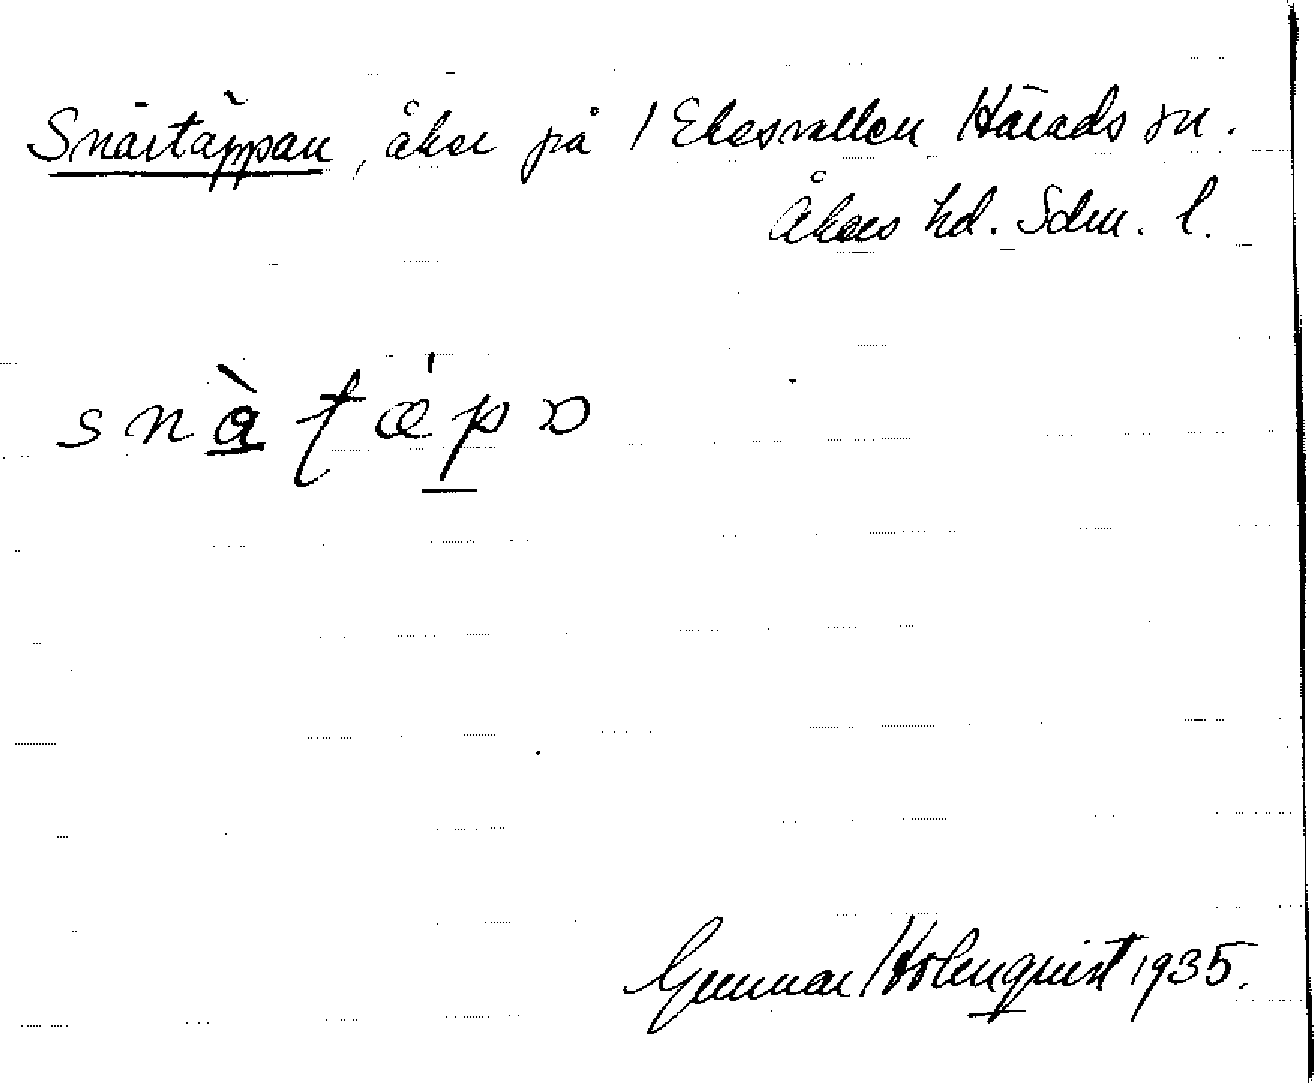 Snärtäppan, åker på 1 Ekesvallen Härads sn.
Åkers hd. Sdm. l.
snàtǽpɒ
Gunnar Holmquist 1935.